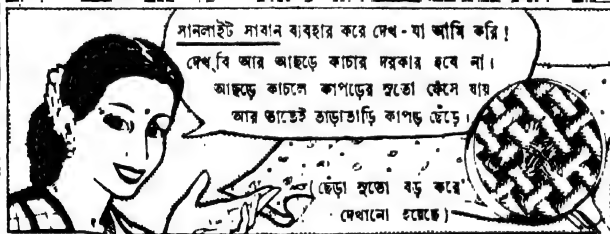 সানলাইট সাবান ব্যবহার করে দেখ - যা আমি করি !
দেখ্‌বি আর আছড়ে কাচার দরকার হবে না।
আছড়ে কাচলে কাপড়ের সুতো ফেঁসে যায়
আর তাতেই তাড়াতাড়ি কাপড় ছেঁড়ে।
(ছেঁড়া সুতো বড় করে
দেখানো হয়েছে)